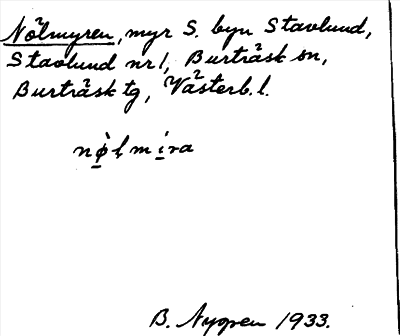 Nölmyren, myr S. byn Stavlund,
Stavlund nr 1, Burträsk sn,
Burträsk tg, Västerb. l.
nø̀lmíra
B. Nygren 1933.